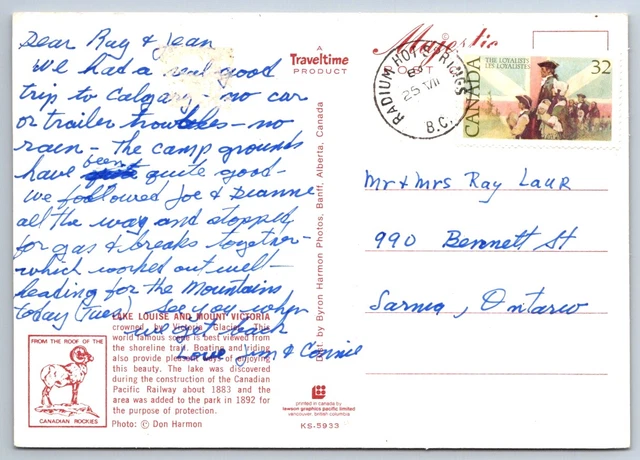 Dear Ray & Jean
We had a real good
trip to Calgary - no car
or trailer troubles - no
rain - the camp grounds
have been quite good -
we followed Joe & Dianne
all the way and stopped
for gas & breaks together -
which worked out well -
heading for the Mountains
today (Tues) see you when
we get back
Love Jim & Connie
LAKE LOUISE AND MOUNT VICTORIA
crowned by Victoria Glacier. This
world famous scene is best viewed from
the shoreline trail. Boating and riding
also provide pleasant ways of enjoying
this beauty. The lake was discovered
during the construction of the Canadian
Pacific Railway about 1883 and the
area was added to the park in 1892 for
the purpose of protection.
Photo: © Don Harmon
FROM THE ROOF OF THE
CANADIAN ROCKIES
A
Traveltime
PRODUCT
Dist. by Byron Harmon Photos, Banff, Alberta, Canada
printed in canada by
lawson graphics pacific limited
vancouver, british columbia
KS-5933
Majestic
POST
RADIUM HOT SPRINGS
25 VII
B.C.
CANADA
THE LOYALISTS
LES LOYALISTES
32
Mr & Mrs Ray Laur
990 Bennett St
Sarnia, Ontario